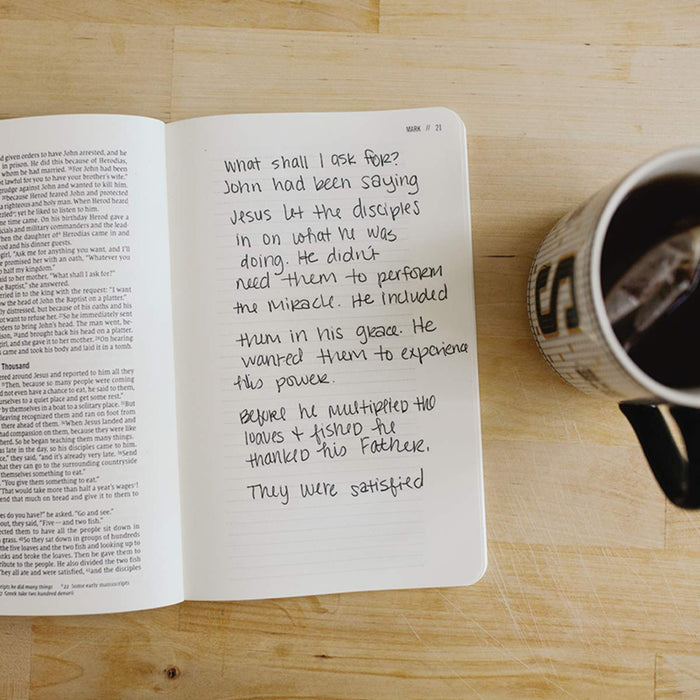 d given orders to have John arrested, and he
in prison. He did this because of Herodias,
whom he had married. ¹⁸For John had been
t lawful for you to have your brother's wife."
grudge against John and wanted to kill him,
²⁰because Herod feared John and protected
a righteous and holy man. When Herod heard
zzled; yet he liked to listen to him.
ne time came. On his birthday Herod gave a
icials and military commanders and the lead
When the daughter of Herodias came in and
od and his dinner guests.
girl, "Ask me for anything you want, and I'll
e promised her with an oath, "Whatever you
o half my kingdom."
aid to her mother, "What shall I ask for?"
e Baptist," she answered.
rried in to the king with the request: "I want
w the head of John the Baptist on a platter."
ly distressed, but because of his oaths and his
ot want to refuse her. ²⁷So he immediately sent
rders to bring John's head. The man went, be-
ison, ²⁸and brought back his head on a platter.
girl, and she gave it to her mother. ²⁹On hearing
came and took his body and laid it in a tomb.
Thousand
ered around Jesus and reported to him all they
³¹Then, because so many people were coming
d not even have a chance to eat, he said to them,
urselves to a quiet place and get some rest."
by themselves in a boat to a solitary place. ³³But
leaving recognized them and ran on foot from
there ahead of them. ³⁴When Jesus landed and
had compassion on them, because they were like
herd. So he began teaching them many things.
as late in the day, so his disciples came to him.
ce," they said, "and it's already very late. ³⁶Send
hat they can go to the surrounding countryside
themselves something to eat."
"You give them something to eat."
"That would take more than half a year's wages!
end that much on bread and give it to them to
es do you have?" he asked. "Go and see."
out, they said, "Five—and two fish."
ected them to have all the people sit down in
grass. ⁴⁰So they sat down in groups of hundreds
the five loaves and the two fish and looking up to
nks and broke the loaves. Then he gave them to
tribute to the people. He also divided the two fish
They all ate and were satisfied, ⁴³and the disciples
ripts he did many things ᵇ22 Some early manuscripts
Greek take two hundred denarii
MARK // 21
what shall I ask for?
John had been saying
Jesus let the disciples
in on what he was
doing. He didn't
need them to perform
the miracle. He included
them in his grace. He
wanted them to experience
his power.
Before he multiplied the
loaves + fished he
thanked his Father.
They were satisfied
S